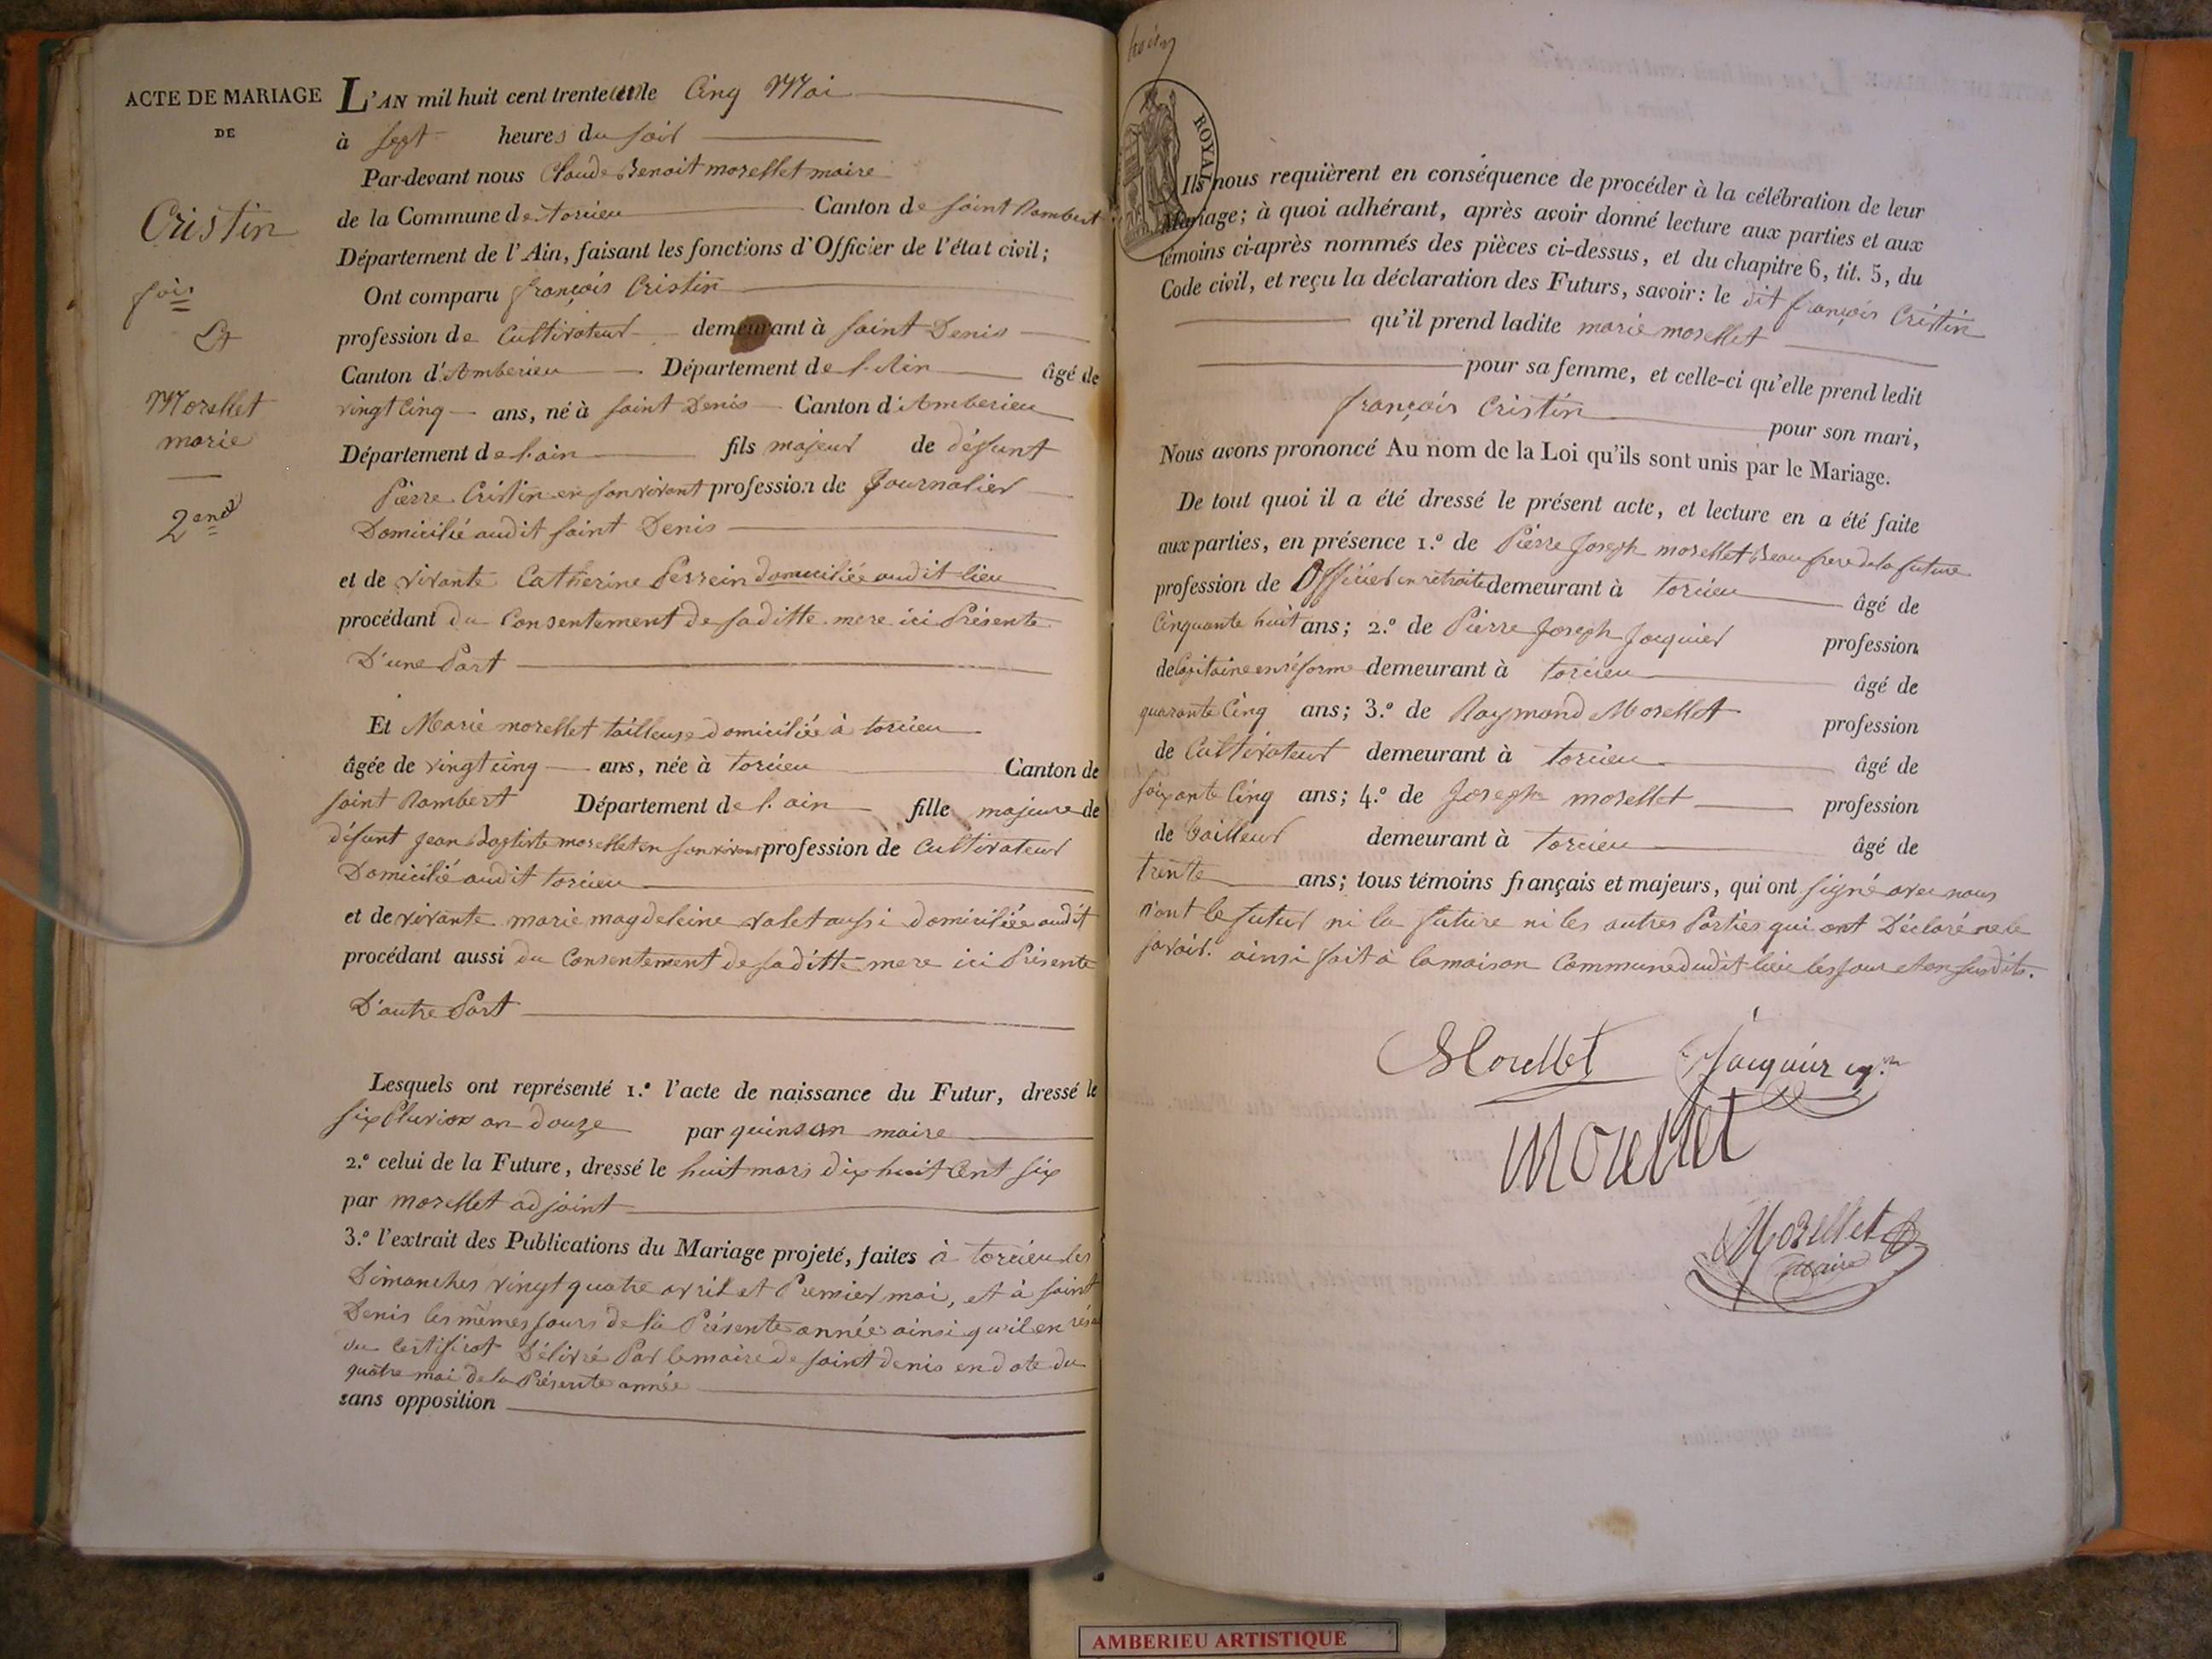 ACTE DE MARIAGE
DE
Cristin
fois
Et
Morellet
marie
2eme
L'AN mil huit cent trente et un le Cinq Mai
à sept heures du soir
Par-devant nous Claude Benoit morellet maire
de la Commune de torcieu Canton de saint Rambert
Département de l'Ain, faisant les fonctions d'Officier de l'état civil;
Ont comparu françois Cristin
profession de Cultivateur demeurant à saint Denis
Canton d'Amberieu Département de l'Ain âgé de
vingt Cinq ans, né à saint Denis Canton d'Amberieu
Département de l'ain fils majeur de défunt
Pierre Cristin en son vivant profession de Journalier
Domicilié audit saint Denis
et de vivante Catherine Perrein domiciliée audit lieu
procédant du Consentement de saditte mere ici Présente
D'une Part
Et Marie morellet tailleuse domiciliée à torcieu
âgée de vingt cinq ans, née à torcieu Canton de
saint Rambert Département de l'ain fille majeure de
défunt Jean Baptiste morellet en son vivant profession de Cultivateur
Domicilié audit torcieu
et de vivante marie magdeleine valet aussi domiciliée audit
procédant aussi du Consentement de saditte mere ici Présente
D'autre Part
Lesquels ont représenté 1.º l'acte de naissance du Futur, dressé le
six Pluviox an douze par quinson maire
2.º celui de la Future, dressé le huit mars dix huit Cent six
par morellet adjoint
3.º l'extrait des Publications du Mariage projeté, faites à torcieu les
Dimanches vingt quatre avril et Premier mai, et à saint
Denis les mêmes jours de la Présente année ainsi qu'il en
du Certificat Délivré Par le maire de saint denis en date du
quatre mai de la Présente année
sans opposition
ROYAL
Ils nous requièrent en conséquence de procéder à la célébration de leur
Mariage; à quoi adhérant, après avoir donné lecture aux parties et aux
témoins ci-après nommés des pièces ci-dessus, et du chapitre 6, tit. 5, du
Code civil, et reçu la déclaration des Futurs, savoir: le dit françois Cristin
qu'il prend ladite marie morellet
pour sa femme, et celle-ci qu'elle prend ledit
françois Cristin pour son mari,
Nous avons prononcé Au nom de la Loi qu'ils sont unis par le Mariage.
De tout quoi il a été dressé le présent acte, et lecture en a été faite
aux parties, en présence 1.º de Pierre Joseph morellet Beau frere de la future
profession de Officier en retraite demeurant à torcieu âgé de
Cinquante huit ans; 2.º de Pierre Joseph Jacquier profession
de Capitaine en réforme demeurant à torcieu âgé de
quarante Cinq ans; 3.º de Raymond Morellet profession
de Cultivateur demeurant à torcieu âgé de
soixante Cinq ans; 4.º de Joseph morellet profession
de tailleur demeurant à torcieu âgé de
trente ans; tous témoins français et majeurs, qui ont signé avec nous
n'ont le futur ni la future ni les autres Parties qui ont Déclaré ne le
savoir. ainsi fait à la maison Commune dudit lieu les jour et an susdits.
Morellet Jacquier
Morellet
Morellet
maire
AMBERIEU ARTISTIQUE